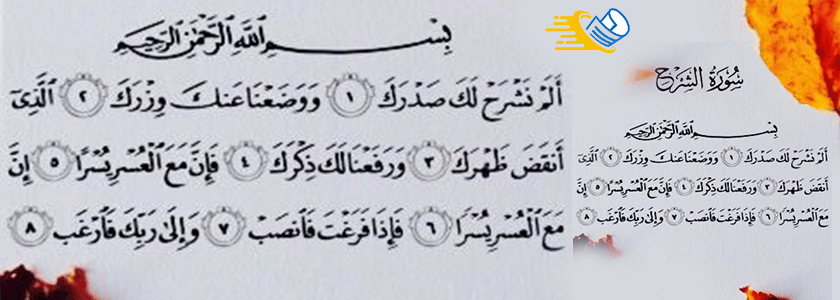 بِسْمِ ٱللَّهِ ٱلرَّحْمَٰنِ ٱلرَّحِيمِ
أَلَمْ نَشْرَحْ لَكَ صَدْرَكَ ١ وَوَضَعْنَا عَنكَ وِزْرَكَ ٢ ٱلَّذِىٓ
أَنقَضَ ظَهْرَكَ ٣ وَرَفَعْنَا لَكَ ذِكْرَكَ ٤ فَإِنَّ مَعَ ٱلْعُسْرِ يُسْرًا ٥ إِنَّ
مَعَ ٱلْعُسْرِ يُسْرًا ٦ فَإِذَا فَرَغْتَ فَٱنصَبْ ٧ وَإِلَىٰ رَبِّكَ فَٱرْغَب ٨
سُورَةُ الشَّرْحِ
بِسْمِ ٱللَّهِ ٱلرَّحْمَٰنِ ٱلرَّحِيمِ
أَلَمْ نَشْرَحْ لَكَ صَدْرَكَ ١ وَوَضَعْنَا عَنكَ وِزْرَكَ ٢ ٱلَّذِىٓ
أَنقَضَ ظَهْرَكَ ٣ وَرَفَعْنَا لَكَ ذِكْرَكَ ٤ فَإِنَّ مَعَ ٱلْعُسْرِ يُسْرًا ٥ إِنَّ
مَعَ ٱلْعُسْرِ يُسْرًا ٦ فَإِذَا فَرَغْتَ فَٱنصَبْ ٧ وَإِلَىٰ رَبِّكَ فَٱرْغَب ٨